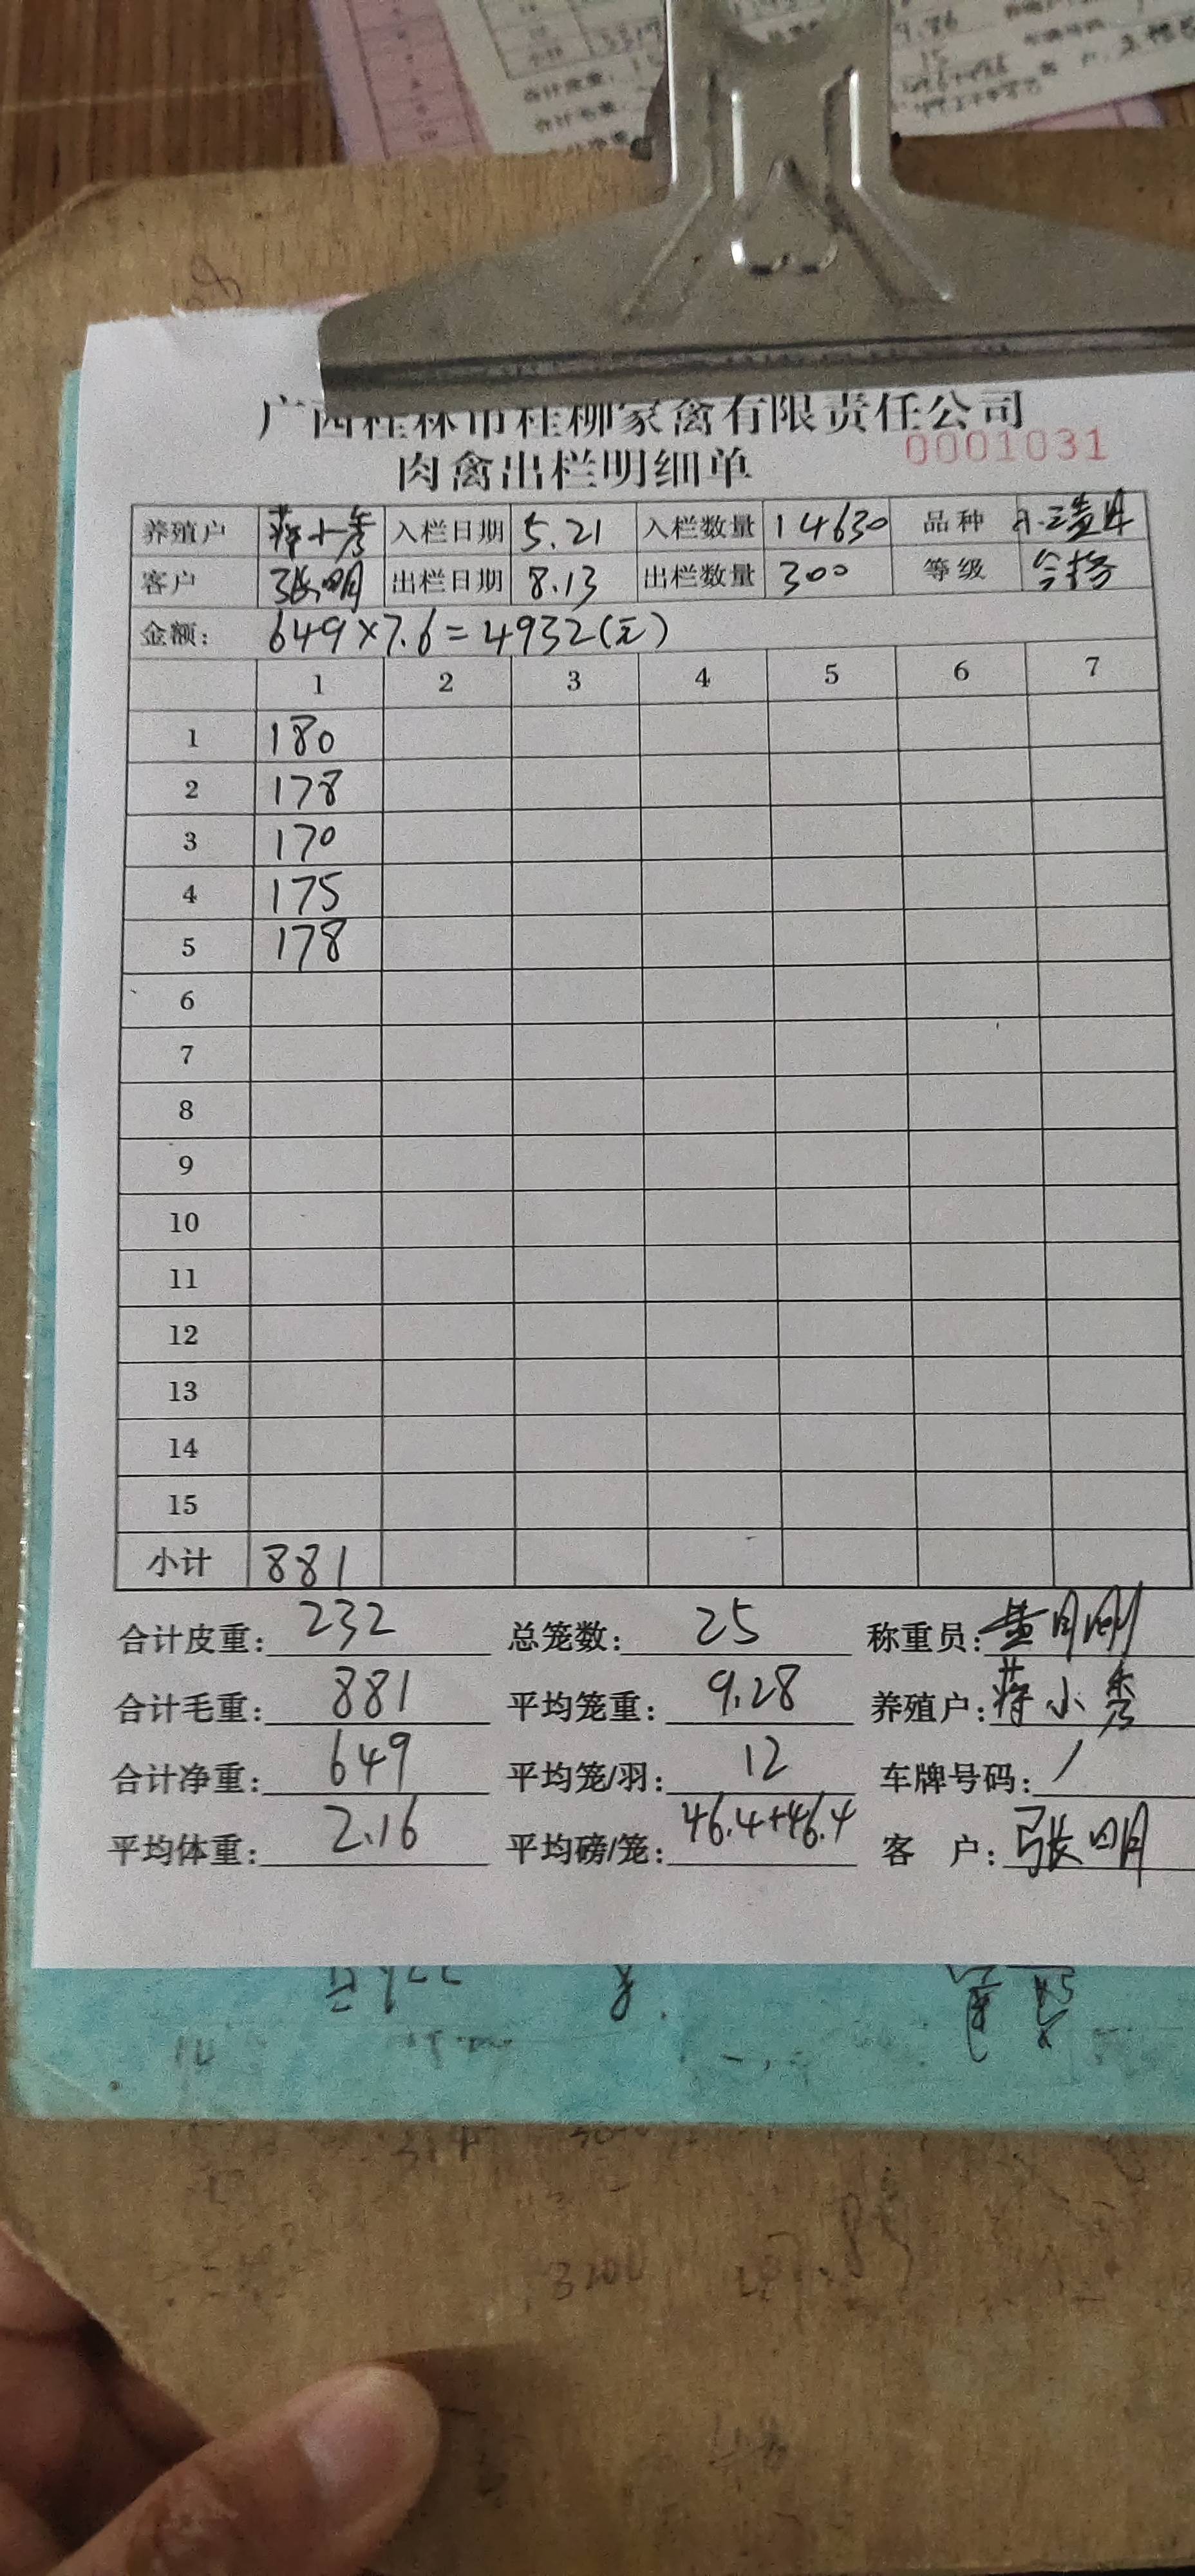 广西桂林市桂柳家禽有限责任公司
0001031
肉禽出栏明细单
养殖户 蒋小秀 入栏日期 5.21 入栏数量 14630 品种
客户 张明 出栏日期 8.13 出栏数量 300 等级 合格
金额: 649×7.6=4932(元)
1 2 3 4 5 6 7
1 180
2 178
3 170
4 175
5 178
6
7
8
9
10
11
12
13
14
15
小计 881
合计皮重: 232 总笼数: 25 称重员:
合计毛重: 881 平均笼重: 9.28 养殖户: 蒋小秀
合计净重: 649 平均笼/羽: 12 车牌号码: /
平均体重: 2.16 平均磅/笼: 46.4+46.4 客 户: 张明